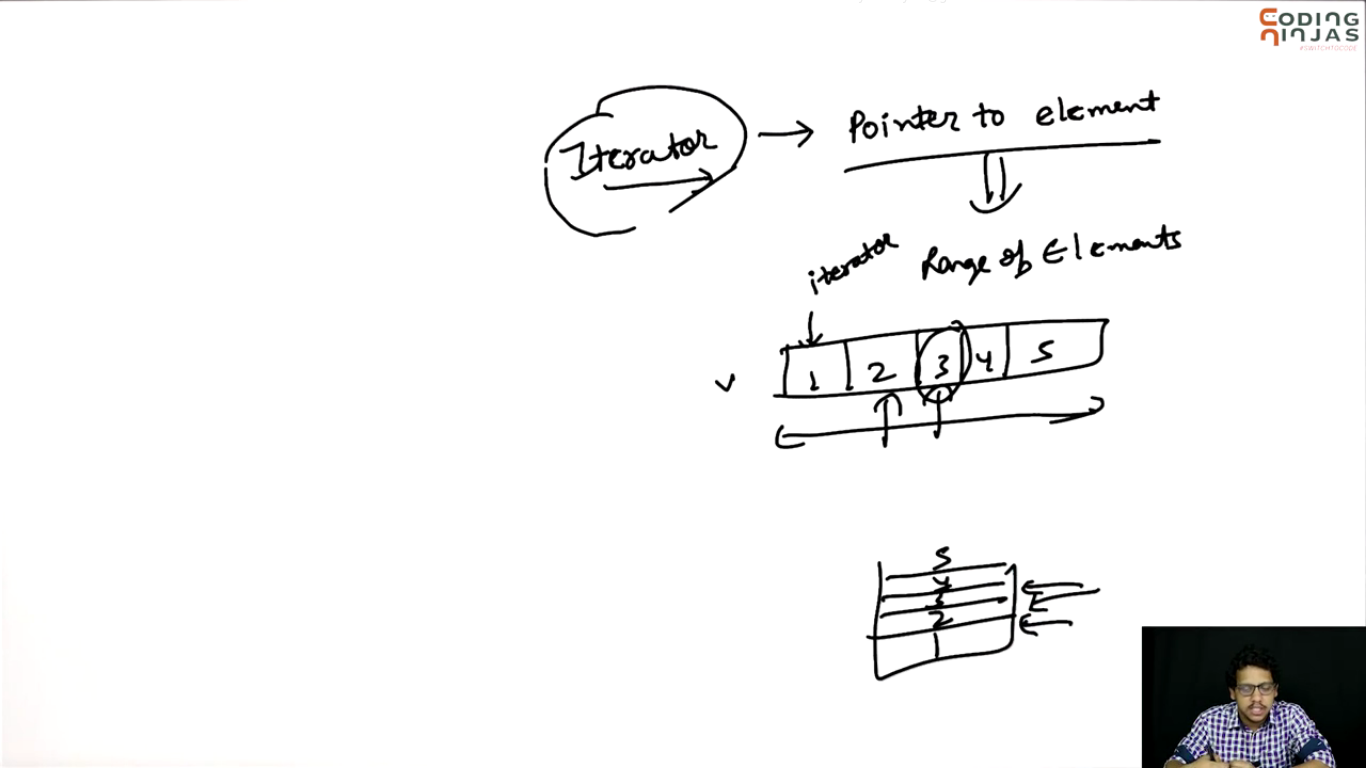 CODING
NINJAS
#SWITCHTOCODE
Iterator
Pointer to element
iterator
Range of Elements
V
1 2 3 4 5
5
4
3
2
1